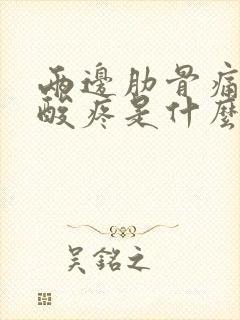 兩邊肋骨痛
酸疼是什麼
吳銘之